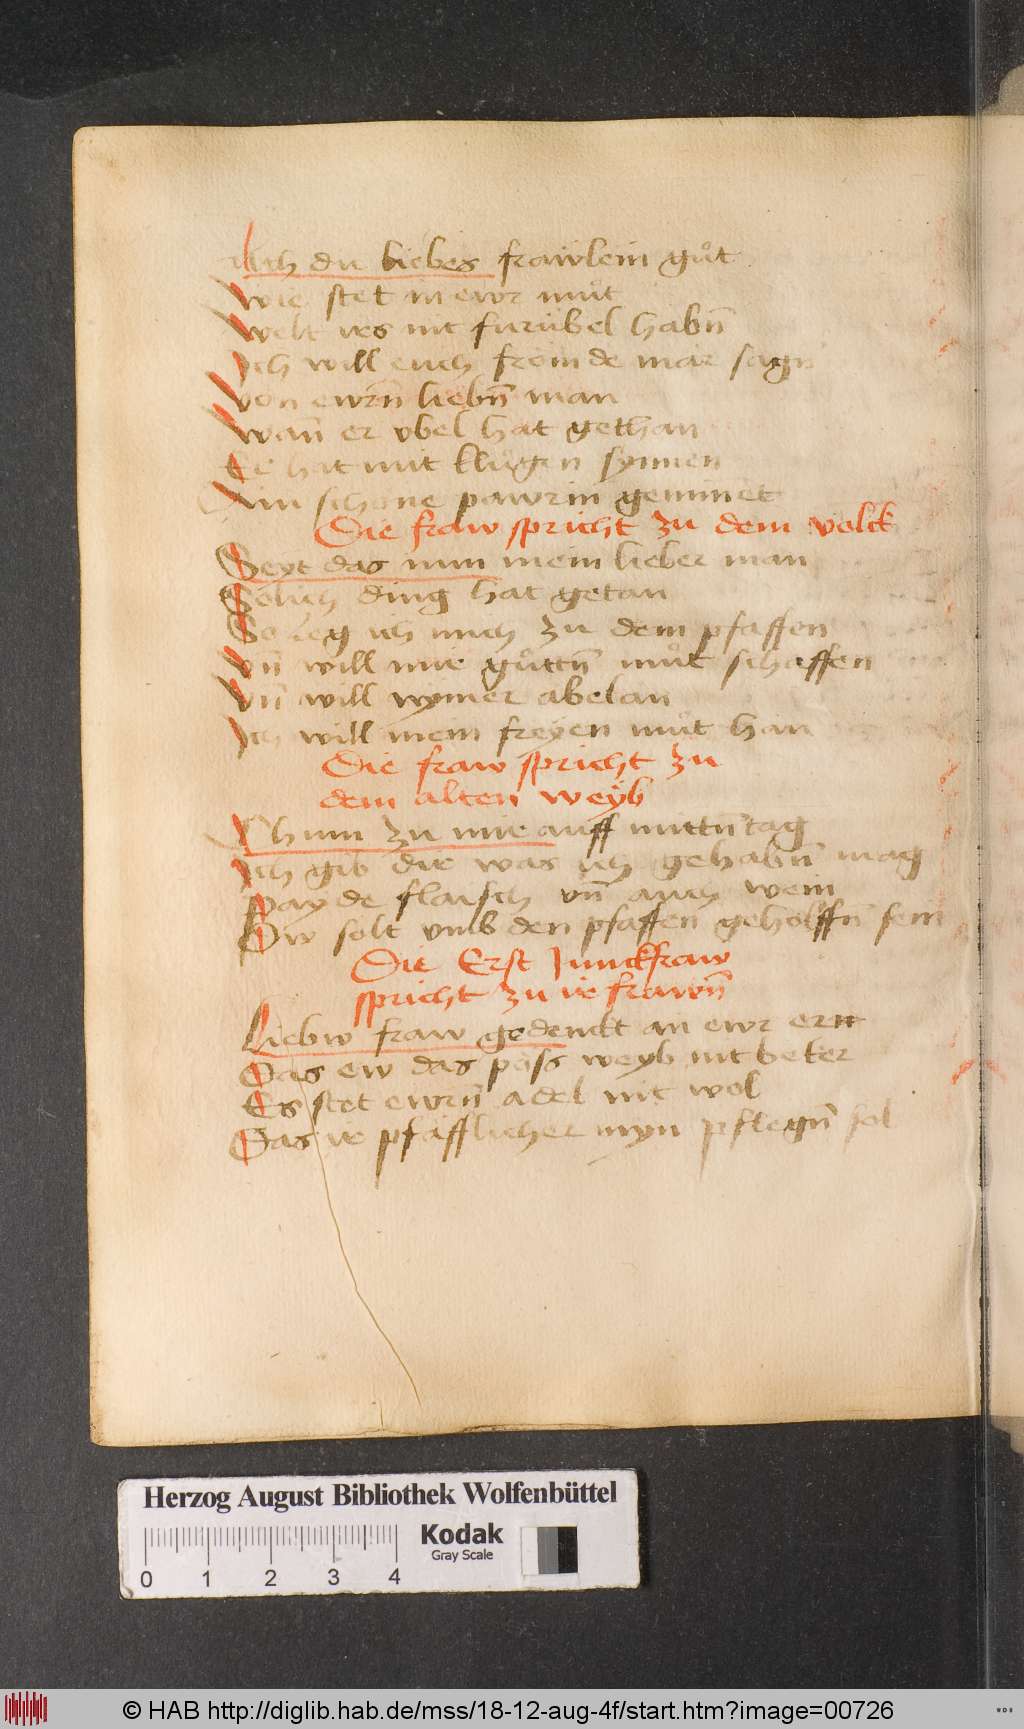 Ach du liebes frawlein gůt
Wie stet in ewr můt
Welt irs nit fur übel habn̄
Ich will euch frömde mär sagn
Von ewrn̄ liebn̄ man
Wan̄ er vbel hat gethan
Er hat mit klůgen synnen
Ain schone pawrin geminet
Die fraw spricht zu dem volck
Seyt das nun mein lieber man
Solich ding hat getan
So leg ich mich zu dem pfaffen
Vn̄ will mir gůttn̄ můt schaffen
Vn̄ will nymer abelan
Ich will mein freyen můt han
Die fraw spricht zu
dem alten weyb
Chum zu mir auff mittn̄tag
Ich gib dir was ich gehabn̄ mag
Payde flaisch vn̄ auch wein
Dw solt vmb den pfaffen geholffn̄ sein
Die Erst Junckfraw
spricht zu ir frawn̄
Liebw fraw gedenckt an ewr ern
Das ew das pöss weyb nit beker
Es stet ewrn̄ adel nit wol
Das ir pfäfflicher myn pflegn̄ sol
Herzog August Bibliothek Wolfenbüttel
Kodak
Gray Scale
0 1 2 3 4
© HAB http://diglib.hab.de/mss/18-12-aug-4f/start.htm?image=00726